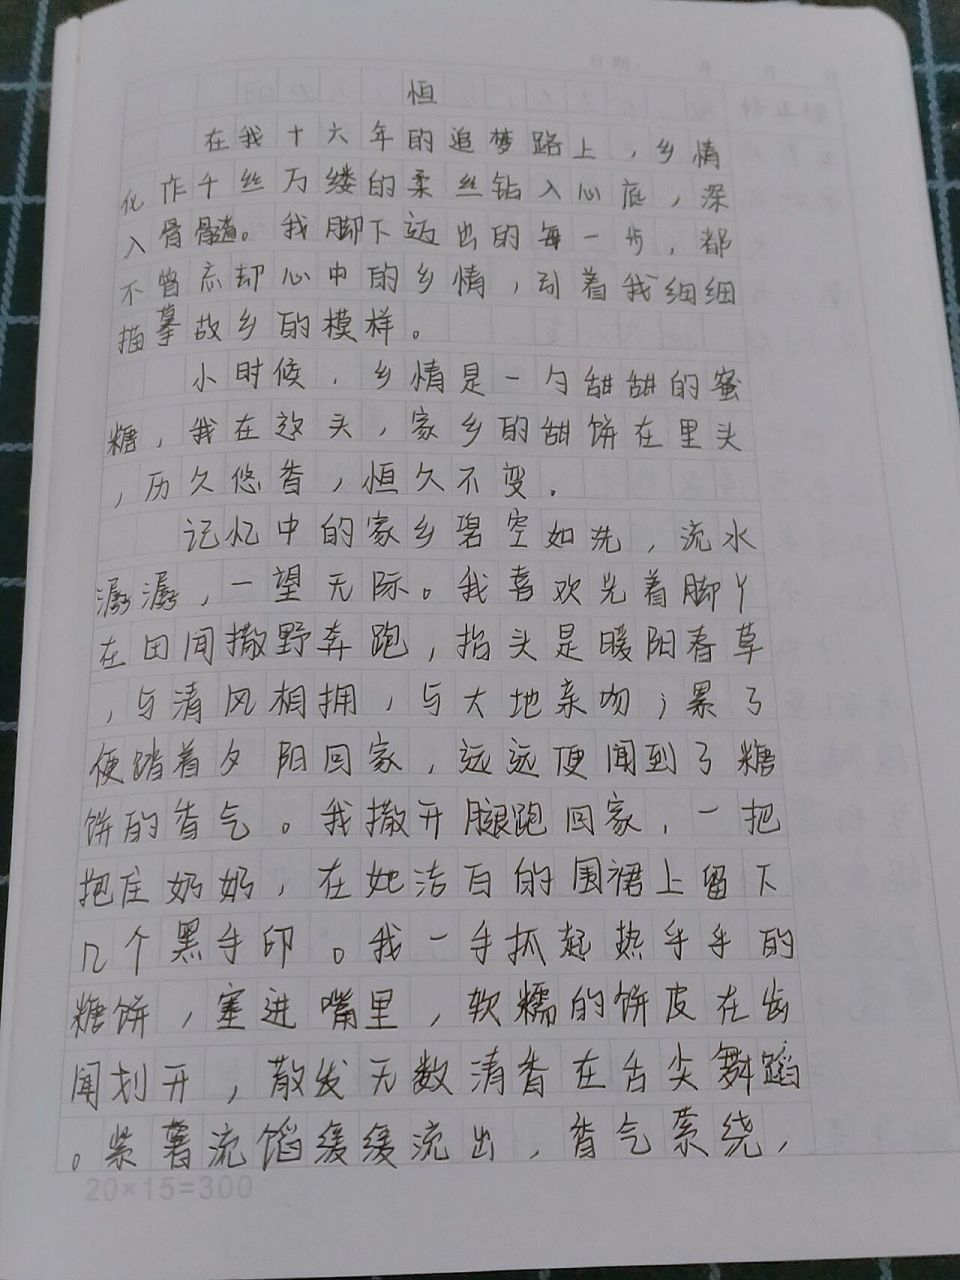 恒
在我十六年的追梦路上，乡情
化作千丝万缕的柔丝钻入心底，深
入骨髓。我脚下迈出的每一步，都
不曾忘却心中的乡情，引着我细细
描摹故乡的模样。
小时候，乡情是一勺甜甜的蜜
糖，我在这头，家乡的甜饼在里头
，历久悠香，恒久不变。
记忆中的家乡碧空如洗，流水
潺潺，一望无际。我喜欢光着脚丫
在田间撒野奔跑，抬头是暖阳春草
，与清风相拥，与大地亲吻；累了
便踏着夕阳回家，远远便闻到了糖
饼的香气。我撒开腿跑回家，一把
抱住奶奶，在她洁白的围裙上留下
几个黑手印。我一手抓起热乎乎的
糖饼，塞进嘴里，软糯的饼皮在齿
间划开，散发无数清香在舌尖舞蹈
。紫薯流馅缓缓流出，香气萦绕，
20×15=300